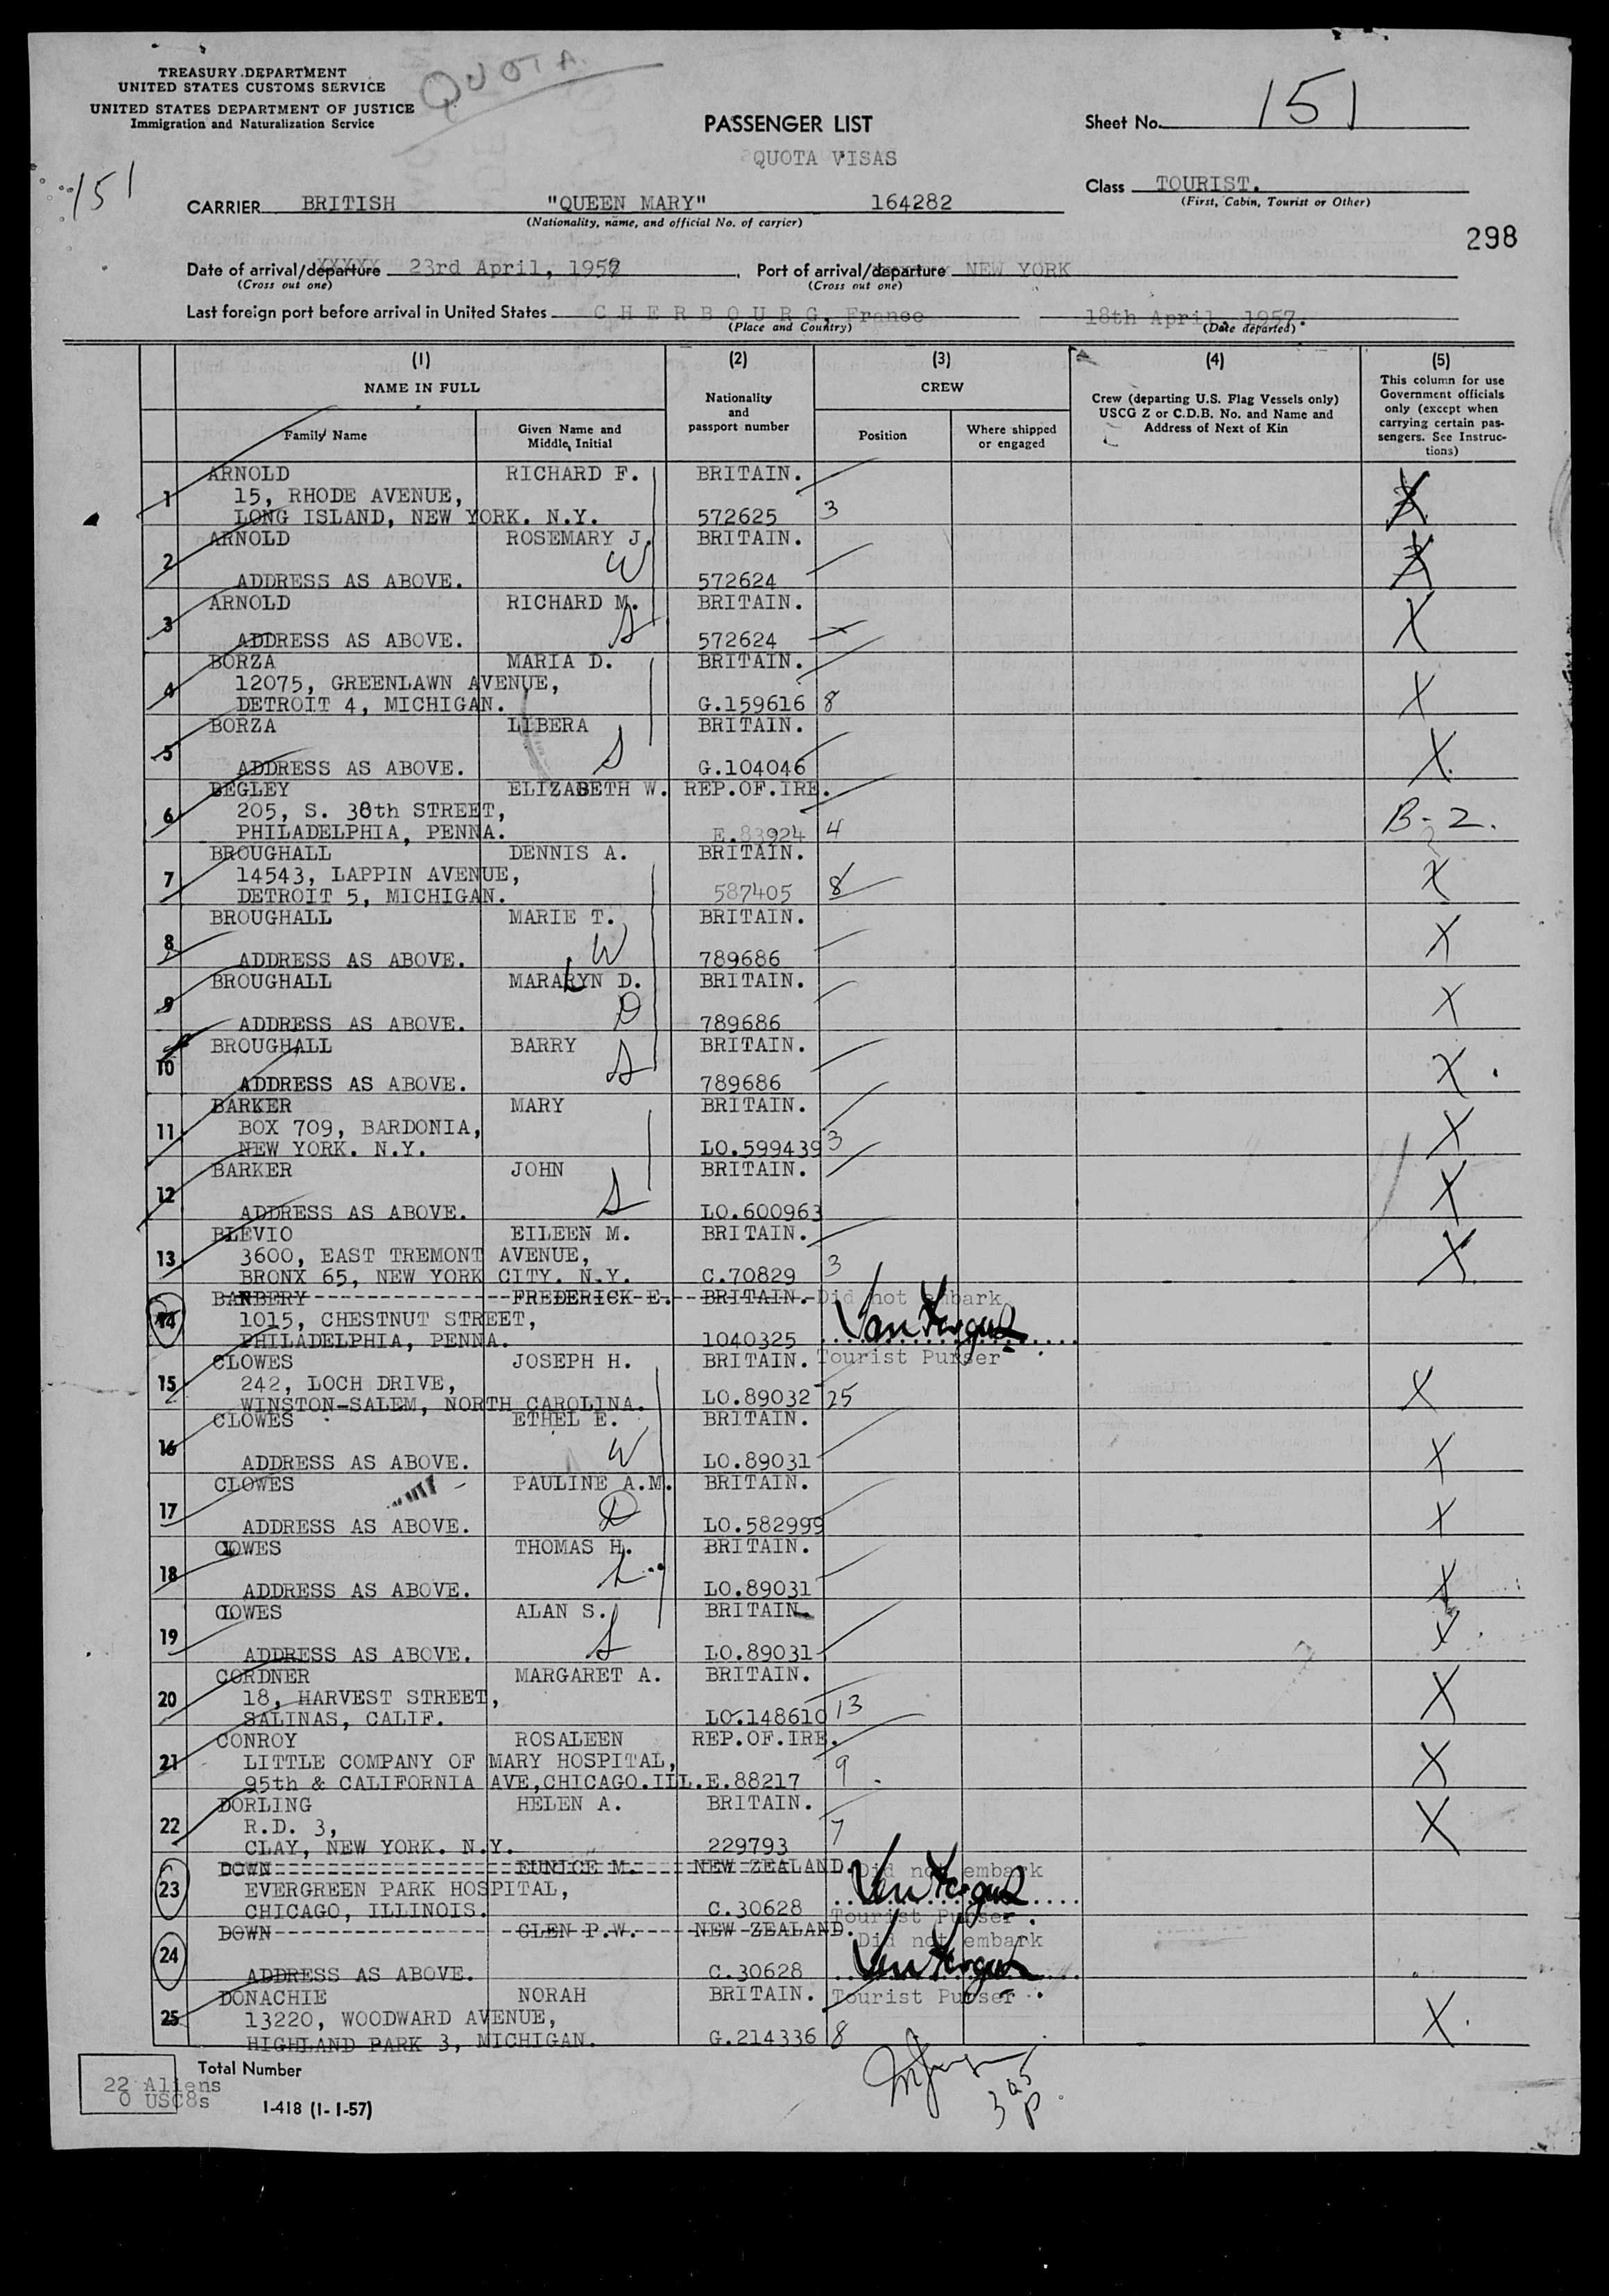 TREASURY DEPARTMENT
UNITED STATES CUSTOMS SERVICE
UNITED STATES DEPARTMENT OF JUSTICE
Immigration and Naturalization Service
QUOTA
PASSENGER LIST
QUOTA VISAS
Sheet No. 151
151
Class TOURIST.
(First, Cabin, Tourist or Other)
CARRIER BRITISH "QUEEN MARY" 164282
(Nationality, name, and official No. of carrier)
298
Date of arrival/departure 23rd April, 1957 Port of arrival/departure NEW YORK
(Cross out one) (Cross out one)
Last foreign port before arrival in United States CHERBOURG, France 18th April, 1957.
(Place and Country) (Date departed)
(1) (2) (3) (4) (5)
NAME IN FULL Nationality and passport number CREW Crew (departing U.S. Flag Vessels only) USCG Z or C.D.B. No. and Name and Address of Next of Kin This column for use Government officials only (except when carrying certain passengers. See Instructions)
Family Name Given Name and Middle Initial Position Where shipped or engaged
1 ARNOLD RICHARD F. BRITAIN.
15, RHODE AVENUE,
LONG ISLAND, NEW YORK. N.Y. 572625 3 X
2 ARNOLD ROSEMARY J. BRITAIN.
W
ADDRESS AS ABOVE. 572624 X
3 ARNOLD RICHARD M. BRITAIN.
S
ADDRESS AS ABOVE. 572624 X
4 BORZA MARIA D. BRITAIN.
12075, GREENLAWN AVENUE,
DETROIT 4, MICHIGAN. G.159616 8 X
5 BORZA LIBERA BRITAIN.
S
ADDRESS AS ABOVE. G.104046 X
6 BEGLEY ELIZABETH W. REP.OF.IRE.
205, S. 38th STREET,
PHILADELPHIA, PENNA. E.83924 4 B-2.
7 BROUGHALL DENNIS A. BRITAIN.
14543, LAPPIN AVENUE,
DETROIT 5, MICHIGAN. 587405 8 X
8 BROUGHALL MARIE T. BRITAIN.
W
ADDRESS AS ABOVE. 789686 X
9 BROUGHALL MARALYN D. BRITAIN.
D
ADDRESS AS ABOVE. 789686 X
10 BROUGHALL BARRY BRITAIN.
S
ADDRESS AS ABOVE. 789686 X
11 BARKER MARY BRITAIN.
BOX 709, BARDONIA,
NEW YORK. N.Y. LO.599439 3 X
12 BARKER JOHN BRITAIN.
S
ADDRESS AS ABOVE. LO.600963 X
13 BLEVIO EILEEN M. BRITAIN.
3600, EAST TREMONT AVENUE,
BRONX 65, NEW YORK CITY. N.Y. C.70829 3 X
14 BANBERY FREDERICK E. BRITAIN. Did not embark
1015, CHESTNUT STREET,
PHILADELPHIA, PENNA. 1040325
Tourist Purser
15 CLOWES JOSEPH H. BRITAIN.
242, LOCH DRIVE,
WINSTON-SALEM, NORTH CAROLINA. LO.89032 25 X
16 CLOWES ETHEL E. BRITAIN.
W
ADDRESS AS ABOVE. LO.89031 X
17 CLOWES PAULINE A.M. BRITAIN.
D
ADDRESS AS ABOVE. LO.582999 X
18 CLOWES THOMAS H. BRITAIN.
ADDRESS AS ABOVE. LO.89031 X
19 CLOWES ALAN S. BRITAIN.
S
ADDRESS AS ABOVE. LO.89031 X
20 CORDNER MARGARET A. BRITAIN.
18, HARVEST STREET,
SALINAS, CALIF. LO.148610 13 X
21 CONROY ROSALEEN REP.OF.IRE.
LITTLE COMPANY OF MARY HOSPITAL,
95th & CALIFORNIA AVE,CHICAGO.ILL. E.88217 9 X
22 DORLING HELEN A. BRITAIN.
R.D. 3,
CLAY, NEW YORK. N.Y. 229793 7 X
23 DOWN EUNICE M. NEW ZEALAND. Did not embark
EVERGREEN PARK HOSPITAL,
CHICAGO, ILLINOIS. C.30628
Tourist Purser
24 DOWN GLEN P.W. NEW ZEALAND. Did not embark
ADDRESS AS ABOVE. C.30628
Tourist Purser
25 DONACHIE NORAH BRITAIN.
13220, WOODWARD AVENUE,
HIGHLAND PARK 3, MICHIGAN. G.214336 8 X
Total Number
22 Aliens
0 USC8s
I-418 (1-1-57)